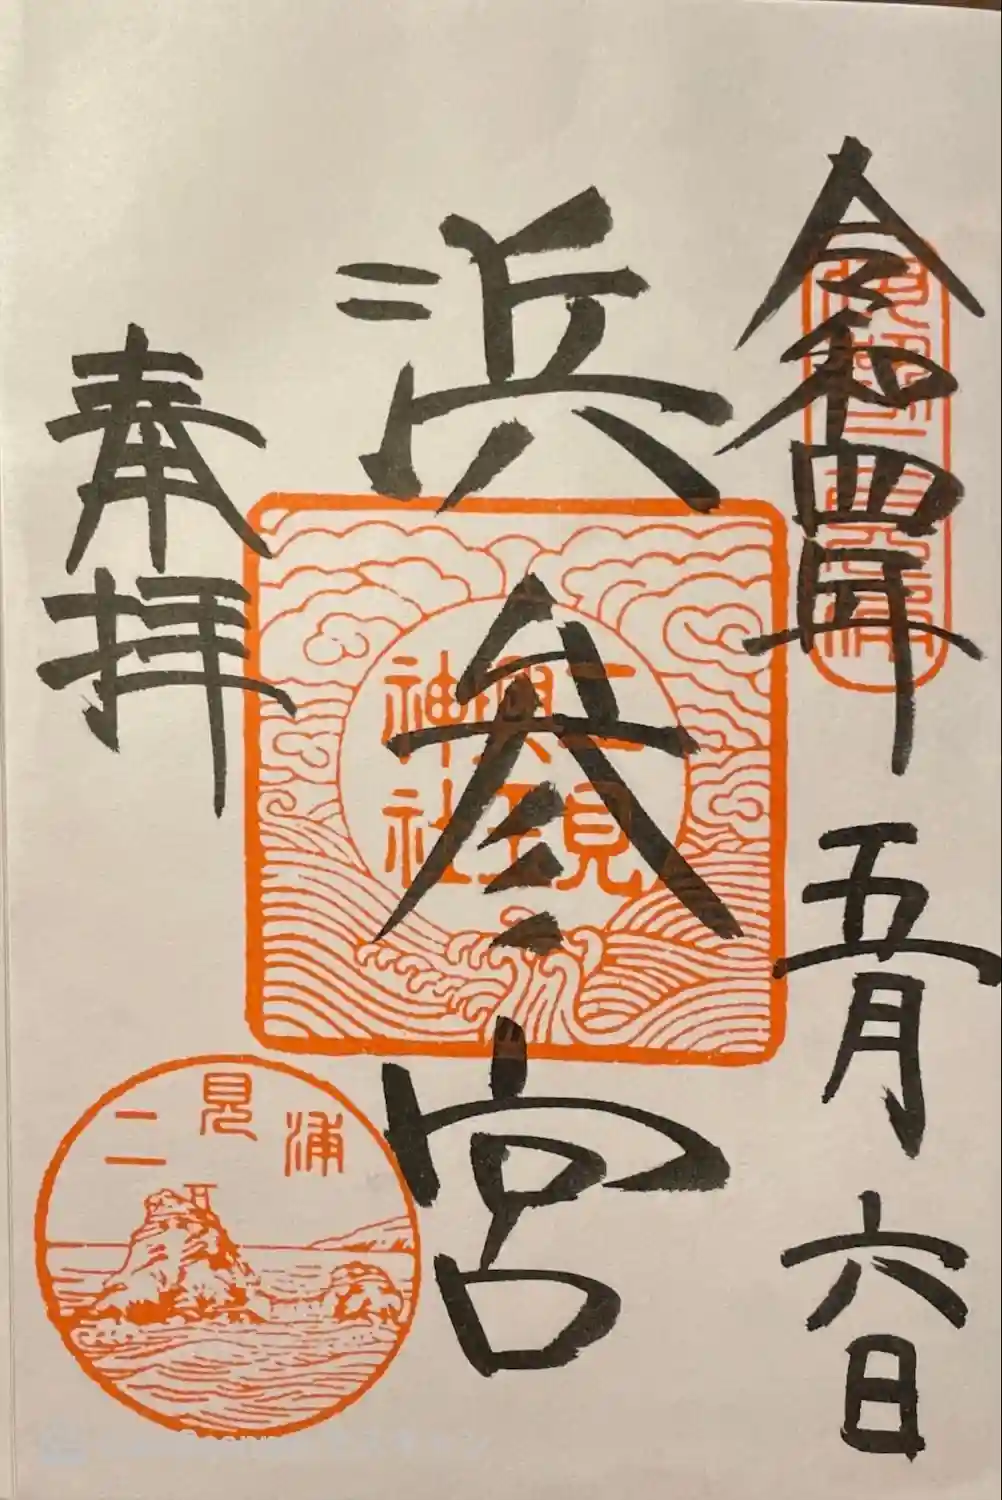 令和四年五月六日
浜参宮
二見
興玉
神社
奉拝
二見浦